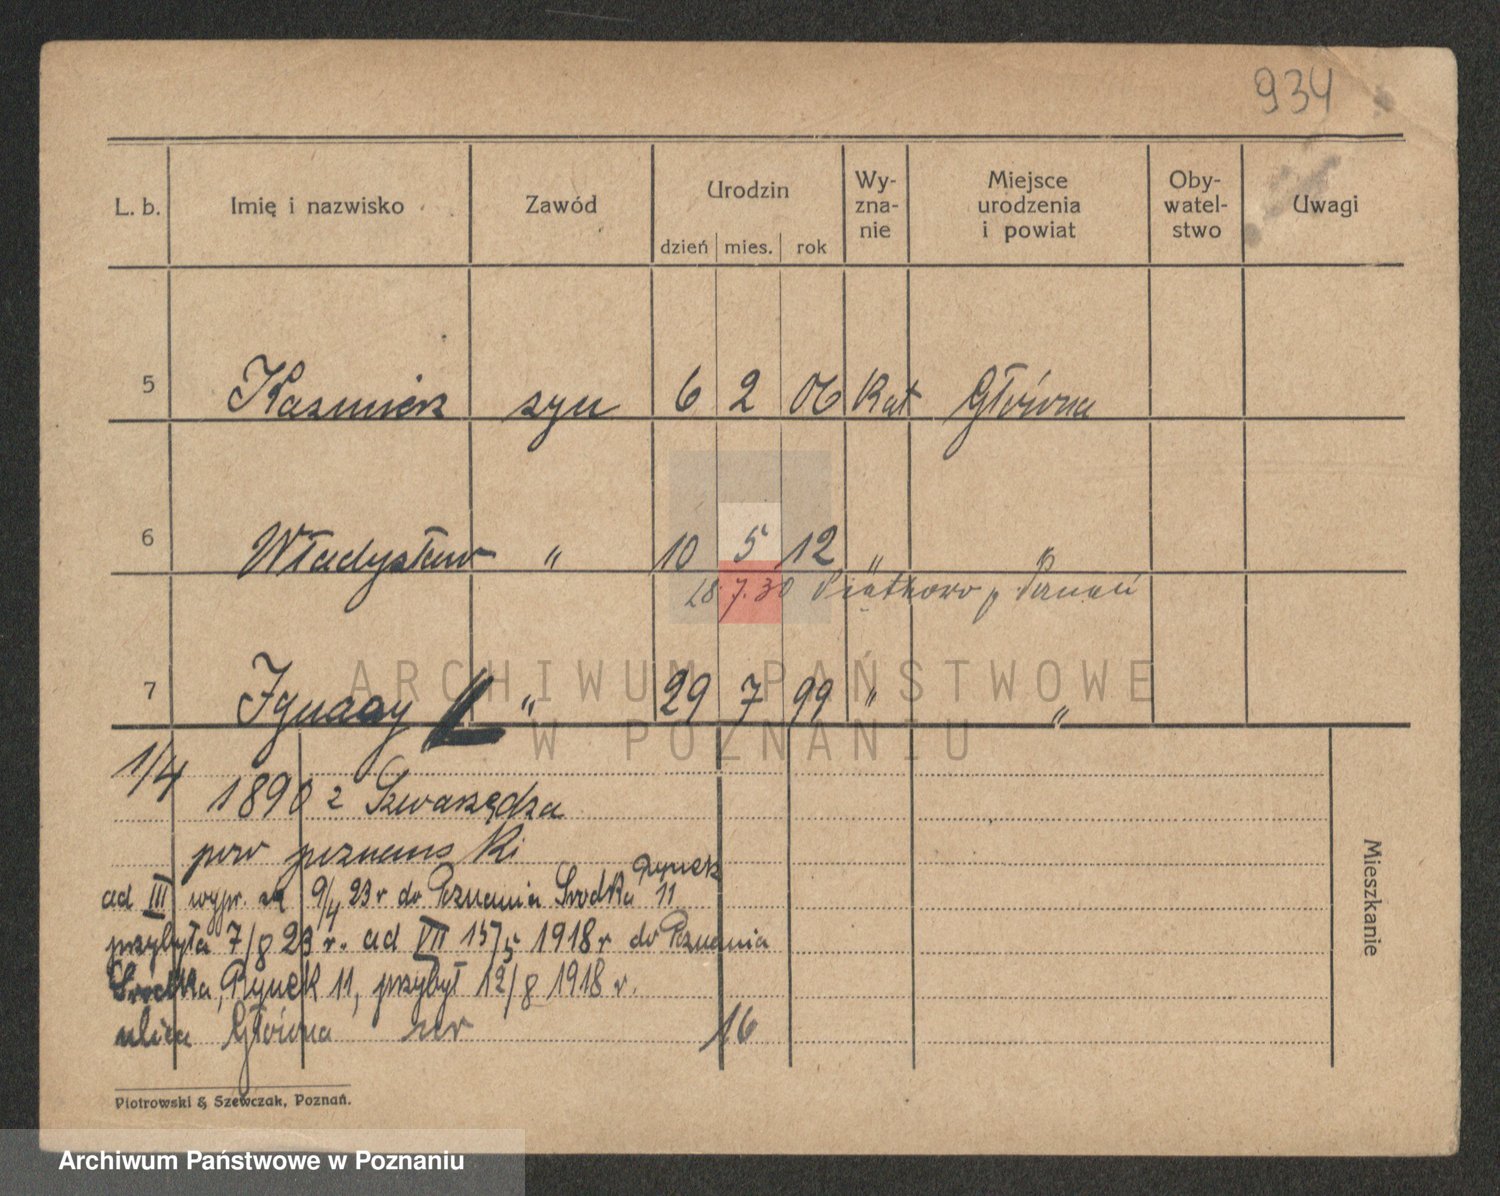 934
L. b. Imię i nazwisko Zawód Urodzin dzień mies. rok Wy-zna-nie Miejsce urodzenia i powiat Oby-watel-stwo Uwagi
5 Kazmierz syn 6 2 06 Kat Główna
6 Władysław " 10 5 12 " "
28.7.30 Piątkowo p. Poznań
7 Ignacy " 29 7 99 " "
ARCHIWUM PAŃSTWOWE
W POZNANIU
1/4
1890 z Szwarzędza
pow poznanski
Rynek
ad III wypr. się 9/4 23 r do Poznania Srodka 11
przybyła 7/8 23 r. ad VII 15 1918 r do Poznania
Srodka, Rynek 11, przybył 12/8 1918 r.
ulica Główna nr 16
Mieszkanie
Piotrowski & Szewczak, Poznań.
Archiwum Państwowe w Poznaniu